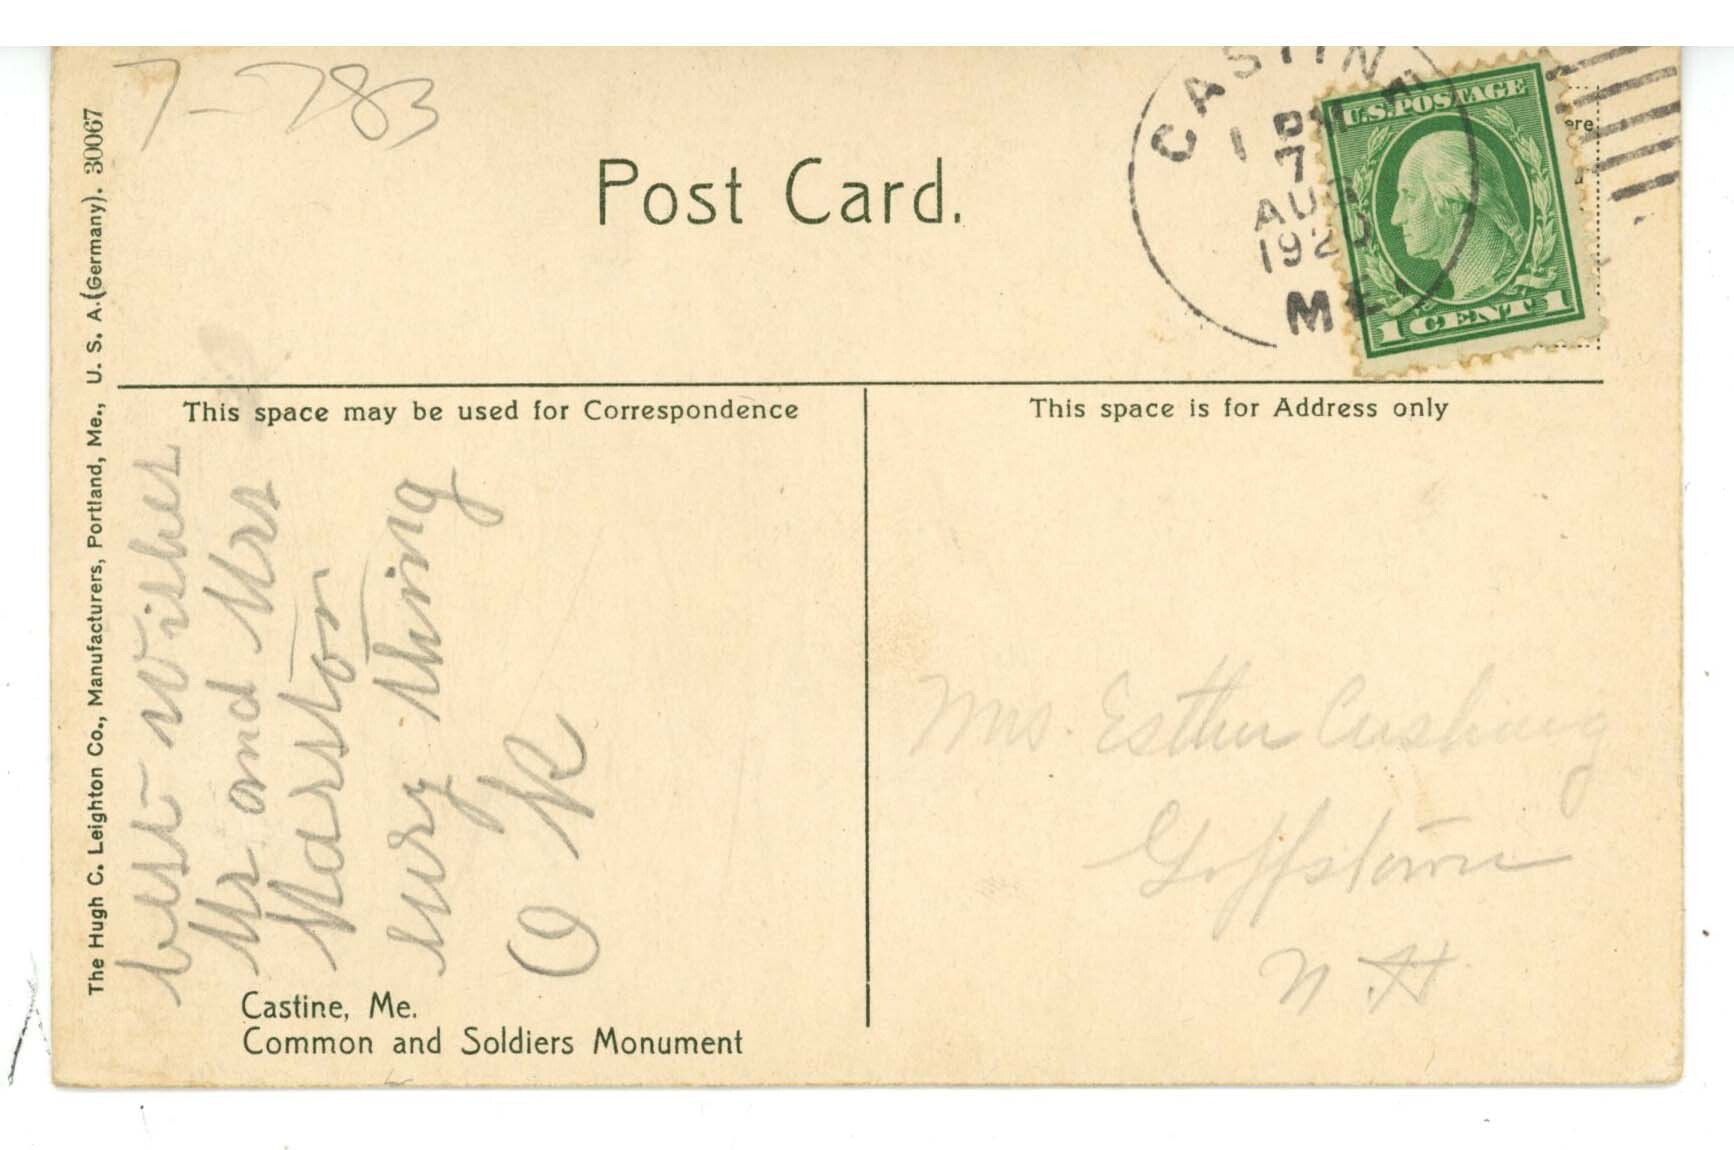 7-783
Post Card.
CASTINE
1 PM
7
AUG
1920
ME
U.S. POSTAGE
1 CENT 1
ere
The Hugh C. Leighton Co., Manufacturers, Portland, Me., U. S. A. (Germany). 30067
This space may be used for Correspondence
This space is for Address only
best wishes
Mr and Mrs
Marston
every thing
O K
Mrs. Esther Cushing
Goffstown
N H
Castine, Me.
Common and Soldiers Monument